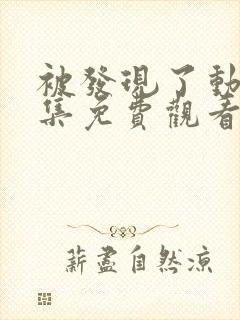 被發現了動
集免費觀看
薪盡自然涼